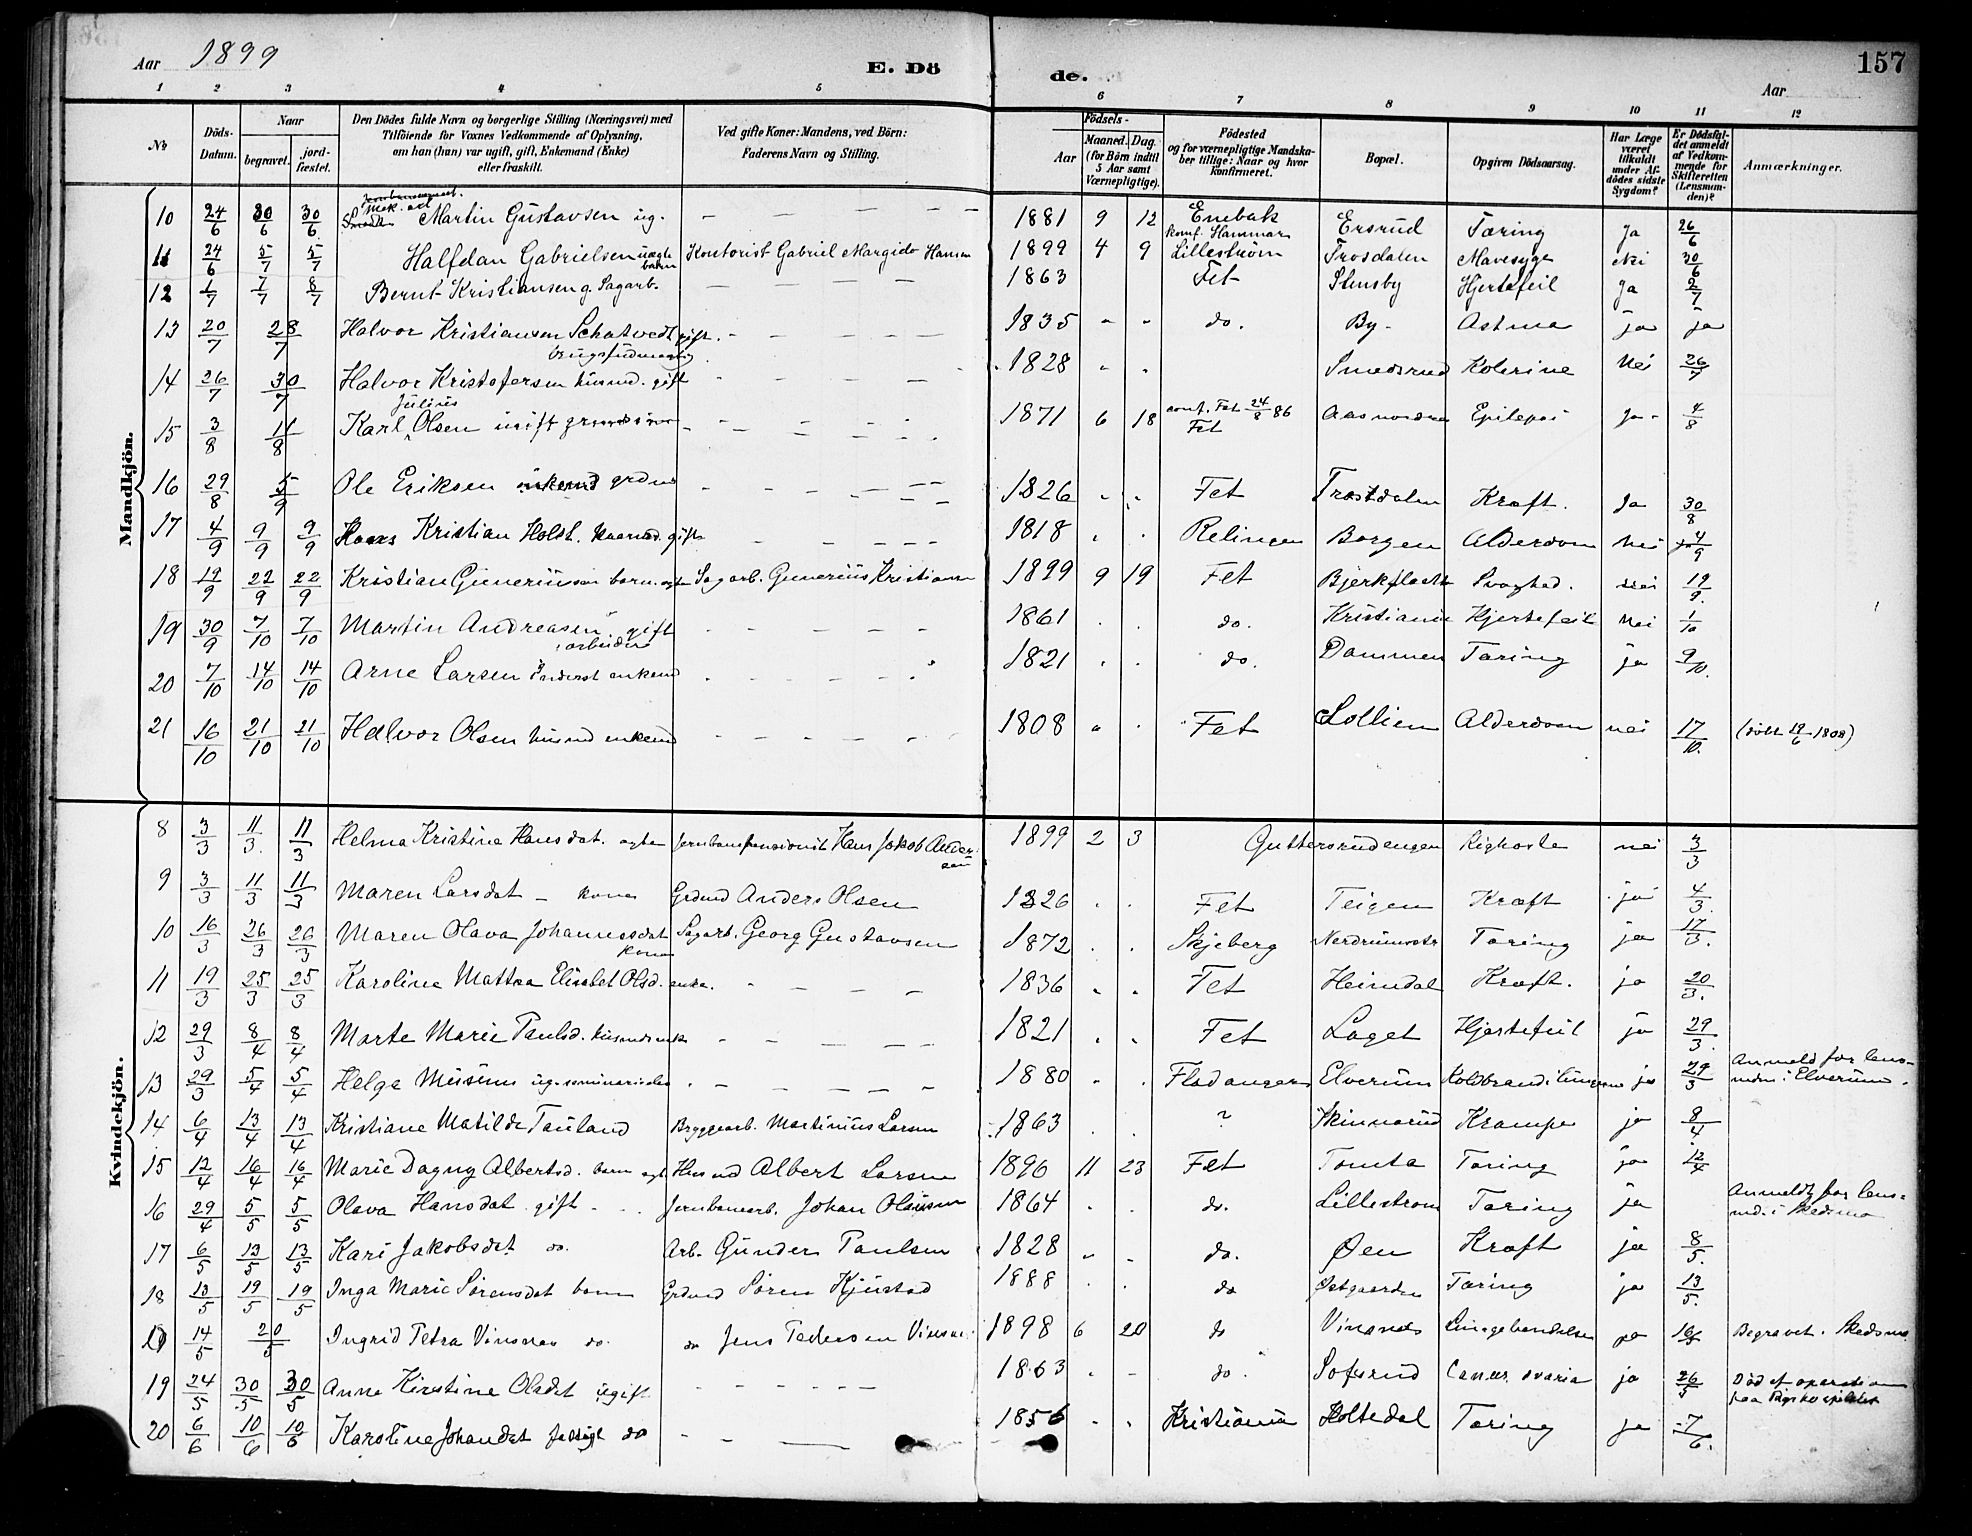 Aar 1899
E. Dö de.
Aar
157
1 2 3 4 5 6 7 8 9 10 11 12
No
Döds-Datum.
Naar begravet. jordfæstet.
Den Dödes fulde Navn og borgerlige Stilling (Næringsvei) med Tilföiende for Voxnes Vedkommende af Oplysning, om han (hun) var ugift, gift, Enkemand (Enke) eller fraskilt.
Ved gifte Koner: Mandens, ved Börn: Faderens Navn og Stilling.
Födsels-
Aar
Maaned. Dag. (for Börn indtil 5 Aar samt Værnepligtige).
Födested og for værnepligtige Mandskaber tillige: Naar og hvor konfirmeret.
Bopæl.
Opgiven Dödsaarsag.
Har Læge været tilkaldt under Afdödes sidste Sygdom?
Er Dödsfaldet anmeldt af Vedkommende for Skifteretten (Lensmanden)?
Anmærkninger.
Mandkjön.
10 24/6 30/6 30/6 Martin Gustavsen ug. – – – – 1881 9 12 Enebak konf. Hammar Ersrud Tæring Ja 26/6
11 24/6 5/7 5/7 Halfdan Gabrielsen uægte barn Kontorist Gabriel Margido Hansen 1899 4 9 Lillestrøm Trosdalen Mavesyge Nei 30/6
12 1/7 7/7 8/7 Bernt Kristiansen g. Sagarb. – – – – 1863 Fet Stensby Hjertefeil Ja 2/7
13 20/7 28/7 Halvor Kristiansen Schatvedt gift. – – – – 1835 " " do. By Astma ja ja
14 26/7 30/7 Halvor Kristofersen husmd. gift – – – – 1828 " " Smedsrud Kolerine Nei 26/7
15 3/8 11/8 Karl Julius Olsen ugift – – – – 1871 6 18 conf. Fet 24/8 86 Fet Aasnordre Epilepsi Ja 4/8
16 29/8 5/9 Ole Eriksen enkemd grdmd – – – – 1826 " " Fet Trostdalen Kræft. Ja 30/8
17 4/9 9/9 9/9 Hans Kristian Holst. kaarmd. gift – – – – 1818 " " Relingen Borgen Alderdom Nei 4/9
18 19/9 22/9 22/9 Kristian Guneriussen barn. egte Sagarb. Gunerius Kristiansen 1899 9 19 Fet Bjerkeflaeth Svaghed. nei 19/9.
19 30/9 7/10 7/10 Martin Andreasen gift arbeider – – – – 1861 . . do. Kristiania Hjertefeil Nei 1/10
20 7/10 14/10 14/10 Arne Larsen inderst enkemd – – – – 1821 . . do. Dammen Tæring ja 9/10.
21 16/10 21/10 21/10 Halvor Olsen husmd enkemd – – – – 1808 " . Fet Lollien Alderdom nei 17/10. (født 19/6 1808)
Kvindekjön.
8 3/3 11/3. 11/3 Helma Kristine Hansdat. egte Jernbanepensionist Hans Jakob Andersen 1899 2 3 Guttersrudengen Kighoste nei 3/3
9 3/3 11/3 11/3 Maren Larsdat – kone Grdmd Anders Olsen 1826 . . Fet Teigen Kræft ja 4/3.
10 16/3 26/3 26/3 Maren Olava Johannesdat kone Sagarb. Georg Gustavsen 1872 . . Skjeberg Nerdrumsstr Tæring ja 17/3.
11 19/3 25/3 25/3 Karoline Mattea Elisabet Olsd. enke. – – – – 1836 " " Fet Heimdal Kræft. ja 20/3.
12 29/3 8/4 8/4 Marte Marie Paulsd. husmdsenke – – – – 1821 " " Fet Laget Hjertefeil ja 29/3.
13 29/3 5/4 5/4 Helga Musum ug. seminarielev – – – – 1880 " " Fladanger Elverum Koldbrand i lungerne ja 29/3 Anmeld for lensmdn i Elverum.
14 6/4 13/4 13/4 Kristiane Matilde Tauland Bryggearb. Martinius Larsen 1863 . . ? Skinnarud Krampe ja 8/4
15 12/4 16/4 16/4 Marie Dagny Albertsd. barn egt Husmd Albert Larsen 1896 11 23 Fet Tomta Tæring ja 12/4
16 29/4 5/5 5/5 Olava Hansdat gift Jernbanearb. Johan Olausen 1864 . . do. Lillestrøm Tæring ja Anmeldt for lensmd. i Skedsmo
17 6/5 13/5 13/5 Kari Jakobsdat do. Arb. Gunder Paulsen 1828 " " do. Øen Kræft ja 8/5.
18 13/5 19/5 19/5 Inga Marie Sörensdat barn Grdmd Sören Kjustad 1888 . . do Østgaarden Tæring ja 13/5.
14/5 20/5 Ingrid Petra Vinsnes do. do Jens Pedersen Vinsnes 1898 6 20 do Vinsnes Lungebendelse ja 16/5 Begravet i Skedsmo
19 24/5 30/5 30/5 Anne Kirstine Olsdat ugift – – – – 1863 " – do. Sofsrud Cancer ovaria ja 26/5 Död af operation paa Rigshospitalet
20 6/6 10/6 10/6 Karoline Johansdat fattigl do – – – 1856 " " Kristiania Holtedal Tæring ja 7/6.